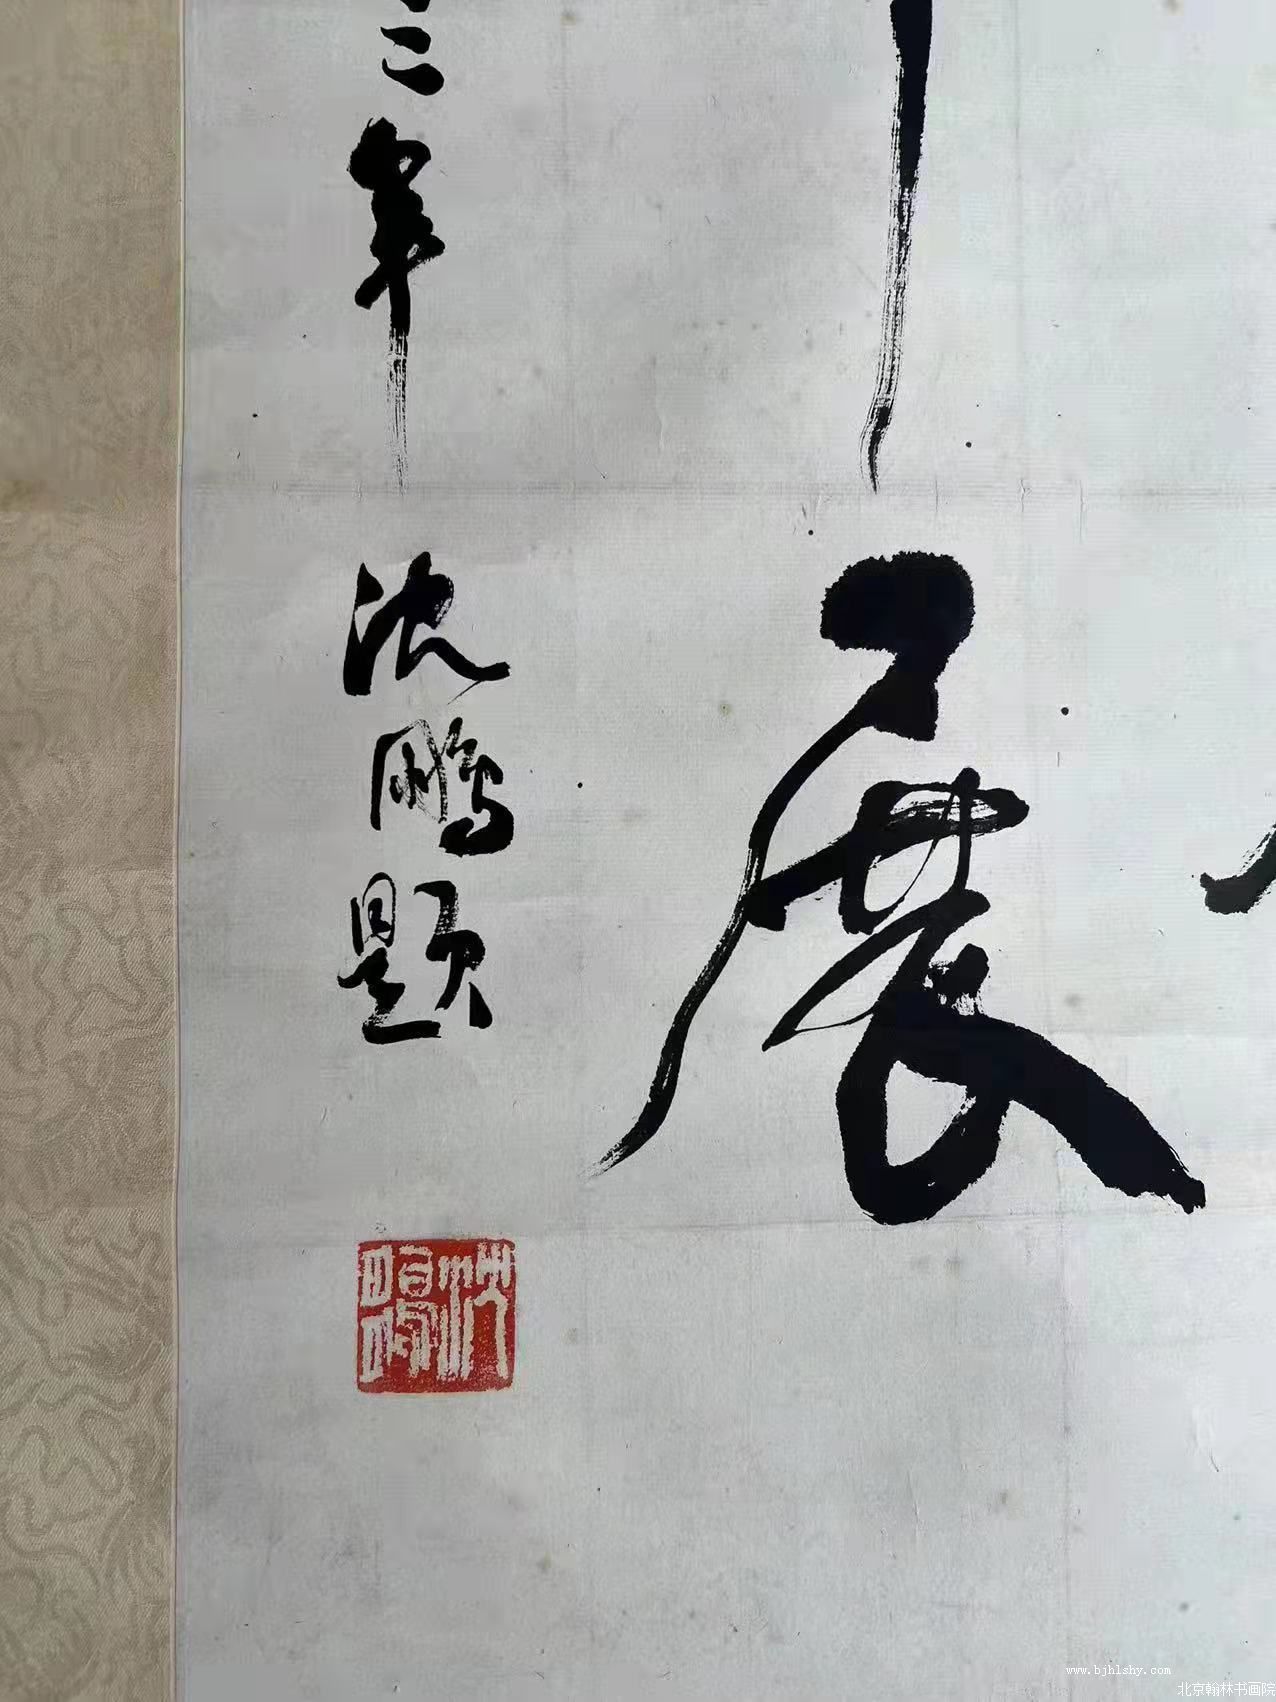 展
二年
沈鹏题
沈鹏
www.bjhlshy.com
北京翰林书画院